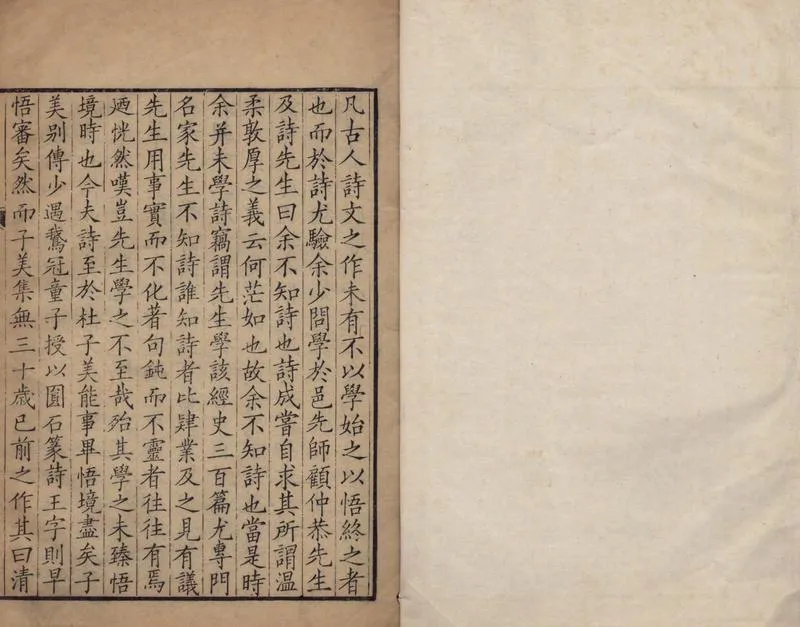 凡古人詩文之作未有不以學始之以悟終之者
也而於詩尤驗余少問學於邑先師顧仲恭先生
及詩先生曰余不知詩也詩成嘗自求其所謂溫
柔敦厚之義云何茫如也故余不知詩也當是時
余并未學詩竊謂先生學該經史三百篇尤專門
名家先生不知詩誰知詩者比肆業及之見有議
先生用事實而不化著句鈍而不靈者往往有焉
廼恍然嘆豈先生學之不至哉殆其學之未臻悟
境時也今夫詩至於杜子美能事畢悟境盡矣子
美別傳少遇鵞冠童子授以圓石篆詩王字則早
悟審矣然而子美集無三十歲已前之作其曰清